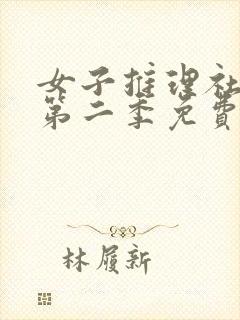 女子推理社
第二季免費
林履新